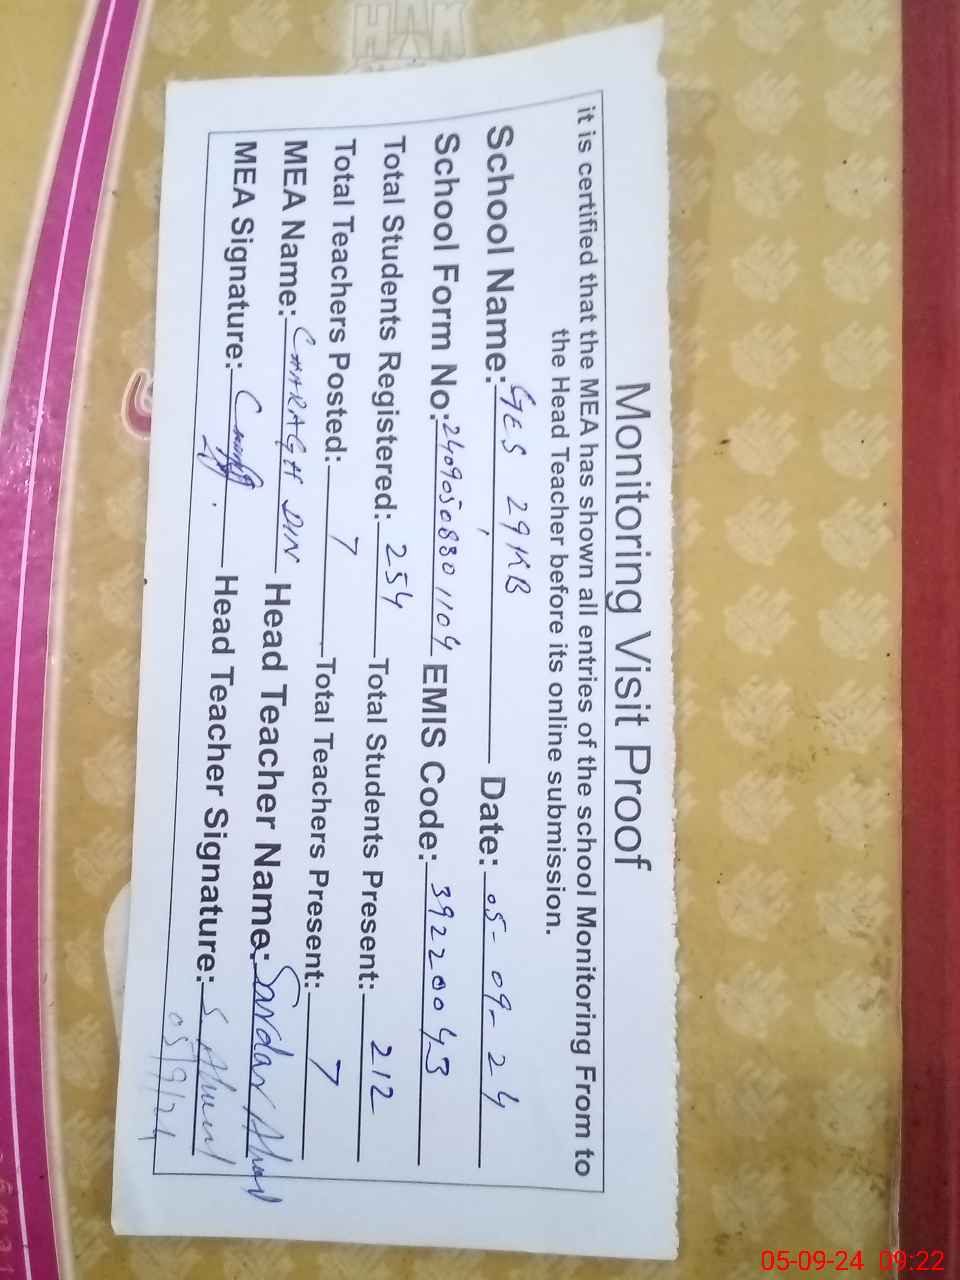 Monitoring Visit Proof
it is certified that the MEA has shown all entries of the school Monitoring From to
the Head Teacher before its online submission.
School Name: GES 29KB Date: 05-09-24
School Form No: 2409050830 1104 EMIS Code: 39220043
Total Students Registered: 254 Total Students Present: 212
Total Teachers Posted: 7 Total Teachers Present: 7
MEA Name: CHARAGH DIN Head Teacher Name: Sardar Ahmad
MEA Signature: Head Teacher Signature: S. Ahmad
05/9/24
05-09-24 09:22